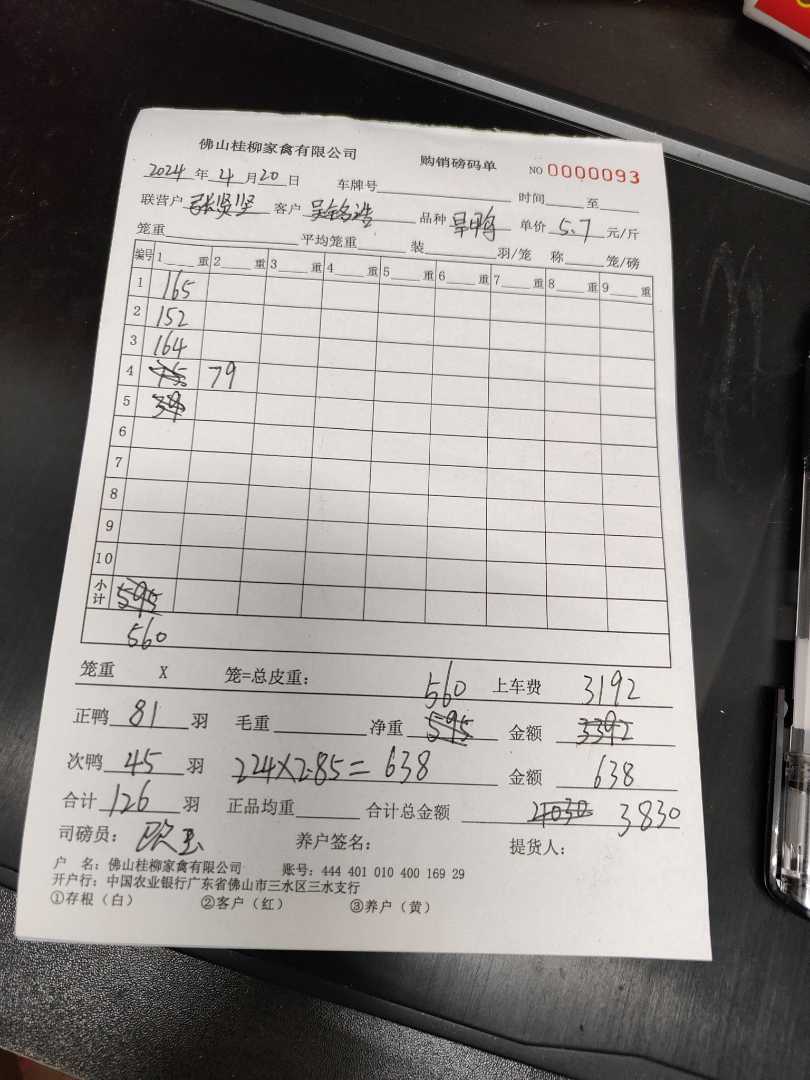 佛山桂柳家禽有限公司 购销磅码单 NO 0000093
2024 年 4 月 20 日 车牌号 时间 至
联营户 张贤坚 客户 吴铭浩 品种 旱鸭 单价 5.7 元/斤
笼重 平均笼重 装 羽/笼 称 笼/磅
编号 1 重 2 重 3 重 4 重 5 重 6 重 7 重 8 重 9 重
1 165
2 152
3 164
4 75 79
5 39
6
7
8
9
10
小计 595
560
笼重 X 笼=总皮重: 560 上车费 3192
正鸭 81 羽 毛重 净重 595 金额 3392
次鸭 45 羽 224×2.85=638 金额 638
合计 126 羽 正品均重 合计总金额 4030 3830
司磅员: 养户签名: 提货人:
户 名: 佛山桂柳家禽有限公司 账号: 444 401 010 400 169 29
开户行: 中国农业银行广东省佛山市三水区三水支行
①存根（白） ②客户（红） ③养户（黄）